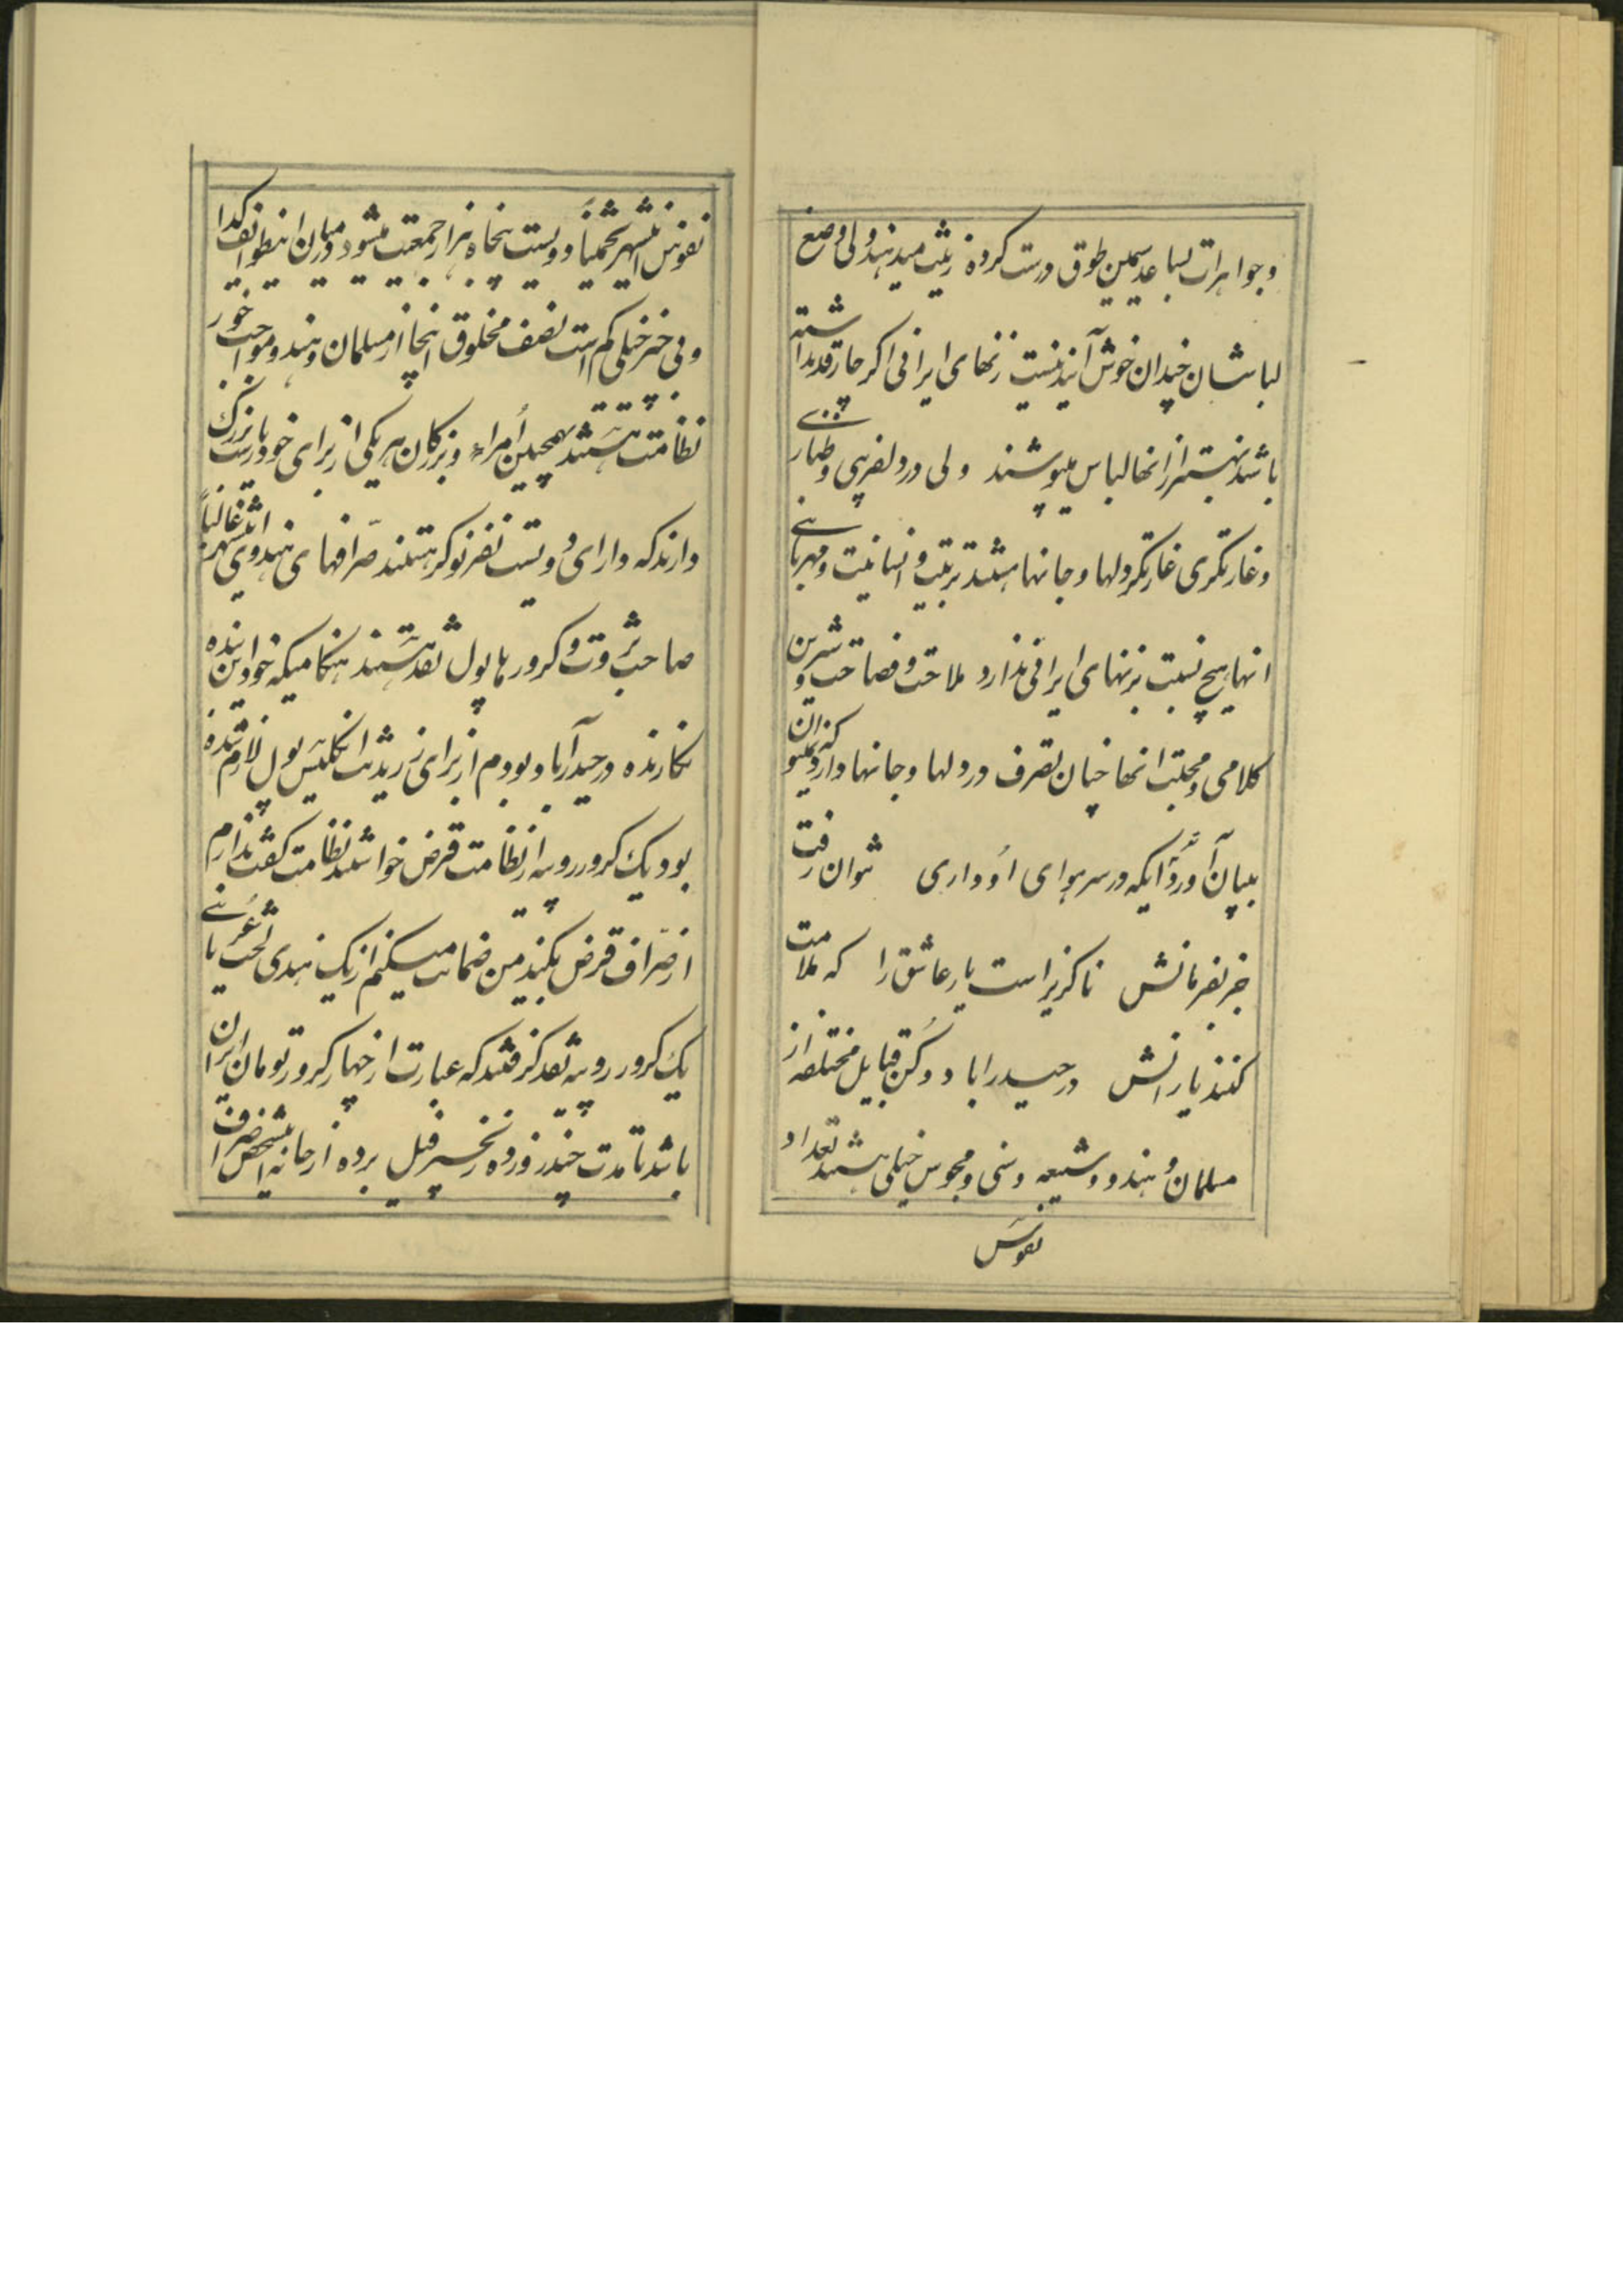 و جواهرات بساعد سیمین طوق درست کرده زینت میدهند ولی وضع
لباسشان چندان خوش آیند نیست زنهای ایرانی اگر چارقد نداشته
باشند بهتر از انها لباس میپوشند ولی در دلفریبی و طراری
و غارتگری غارتگر دلها و جانها هستند تربیت و انسانیت و مهربانی
انها هیچ نسبت بزنهای ایرانی ندارد ملاحت و فصاحت و شیرین
کلامی و محبت انها چنان تصرف در دلها و جانها دارد که نمیتوان
ببیان آورد ایکه در سر هوای او داری نتوان رفت
جز بفرمانش ناگزیر است یار عاشق را که ملامت
کنند یارانش در حیدراباد و دکن قبایل مختلفه از
مسلمان و هندو و شیعه و سنی و مجوس خیلی هستند تعداد
نفوس
نفوس اینشهر تخمیناً دویست پنجاه هزار جمعیت میشود در میان اینطوایف گدا
و بی خیر خیلی کم است نصف مخلوق انجا از مسلمان و هندو مواجب خور
نظامت هستند همچنین أمراء و بزرگان هر یکی از برای خود بزرگ
دارند که دارای دویست نفر نوکر هستند صرّافهای هندوی اینشهر غالباً
صاحب ثروت و کرورها پول نقد هستند هنگامیکه خواننده
نگارنده در حیدرآباد بودم از برای رزیدنت انگلیس پول لازم شده
بود یک کرور روپیه از نظامت قرض خواستند نظامت گفت ندارم
از صرّاف قرض بکنید من ضمانت میکنم از یک هندی لخت عریانی
یک کرور روپیه نقد گرفتند که عبارت از چهار کرور تومان ایران
باشد تا مدت چند روز ده زنجیر فیل برده از خانه اینشخص صراف